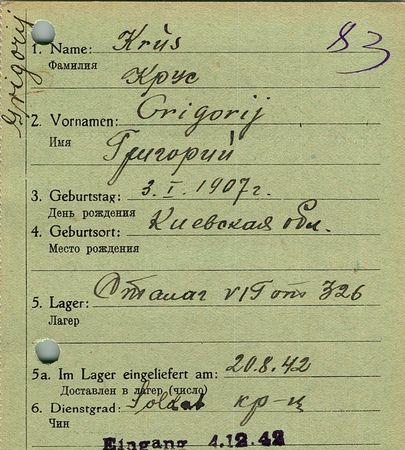 Grigorij
83
1. Name: Krüs
Фамилия
Крус
2. Vornamen: Grigorij
Имя
Григорий
3. Geburtstag: 3. I. 1907 г.
День рождения
4. Geburtsort: Киевская обл.
Место рождения
5. Lager: Сталаг 326
Лагер
5a. Im Lager eingeliefert am: 20.8.42
Доставлен в лагер (число)
6. Dienstgrad: Soldat кр-ц
Чин
Eingang 4.12.42